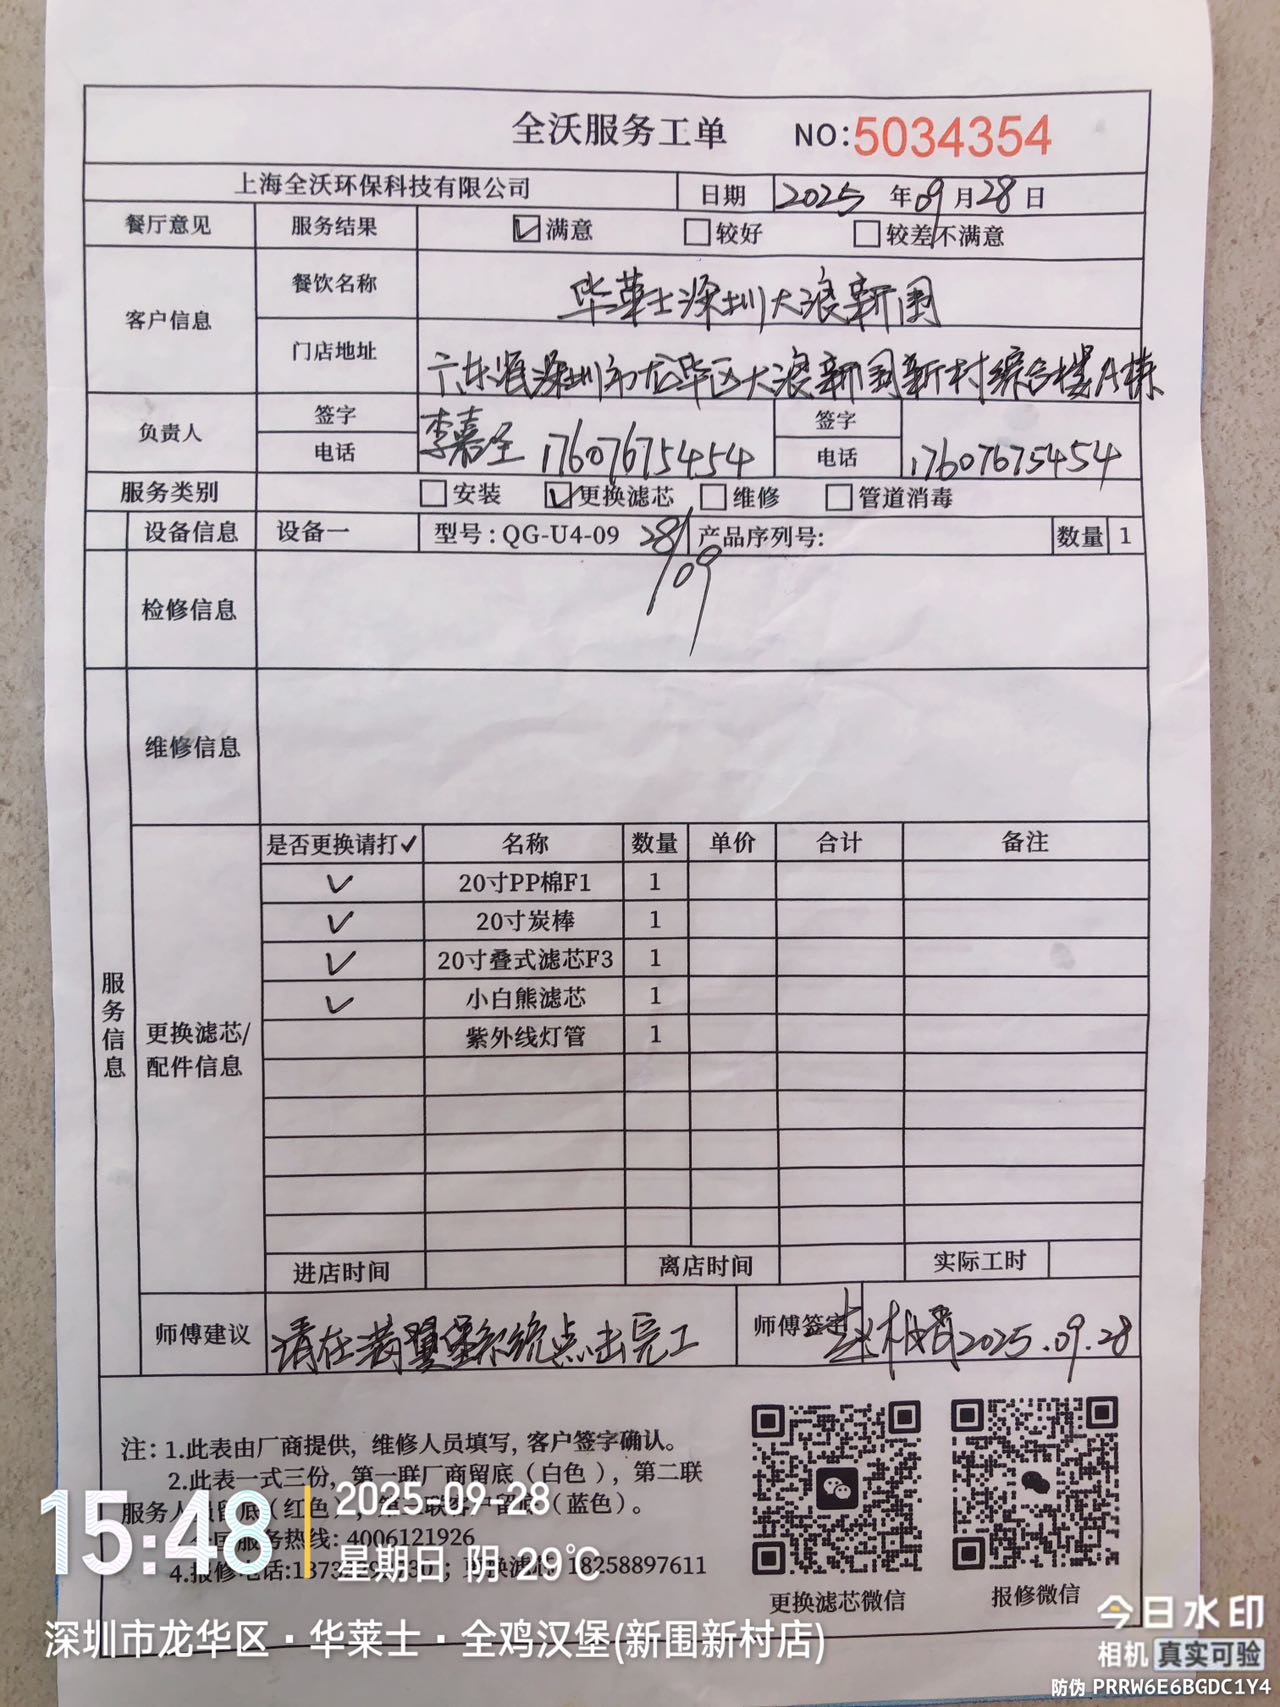 全沃服务工单 NO:5034354
上海全沃环保科技有限公司 日期 2025 年 09 月 28 日
餐厅意见 服务结果 ☑满意 □较好 □较差/不满意
客户信息 餐饮名称 华莱士深圳大浪新围
门店地址 广东省深圳市龙华区大浪新围新村综合楼A栋
负责人 签字 李嘉全 签字
电话 17607675454 电话 17607675454
服务类别 □安装 ☑更换滤芯 □维修 □管道消毒
设备信息 设备一 型号:QG-U4-09 28/09 产品序列号: 数量 1
检修信息
维修信息
服务信息
更换滤芯/配件信息
是否更换请打✓ 名称 数量 单价 合计 备注
✓ 20寸PP棉F1 1
✓ 20寸炭棒 1
✓ 20寸叠式滤芯F3 1
✓ 小白熊滤芯 1
紫外线灯管 1
进店时间 离店时间 实际工时
师傅建议 请在满翼堡系统点击完工 师傅签字 2025.09.28
注: 1.此表由厂商提供, 维修人员填写, 客户签字确认。
2.此表一式三份, 第一联厂商留底(白色), 第二联
服务人员留底(红色), 联客户留底(蓝色)。
服务热线: 4006121926
4.报修电话: 更换滤芯 18258897611
更换滤芯微信 报修微信
15:48 2025-09-28
星期日 阴 29℃
深圳市龙华区·华莱士·全鸡汉堡(新围新村店)
今日水印
相机 真实可验
防伪 PRRW6E6BGDC1Y4